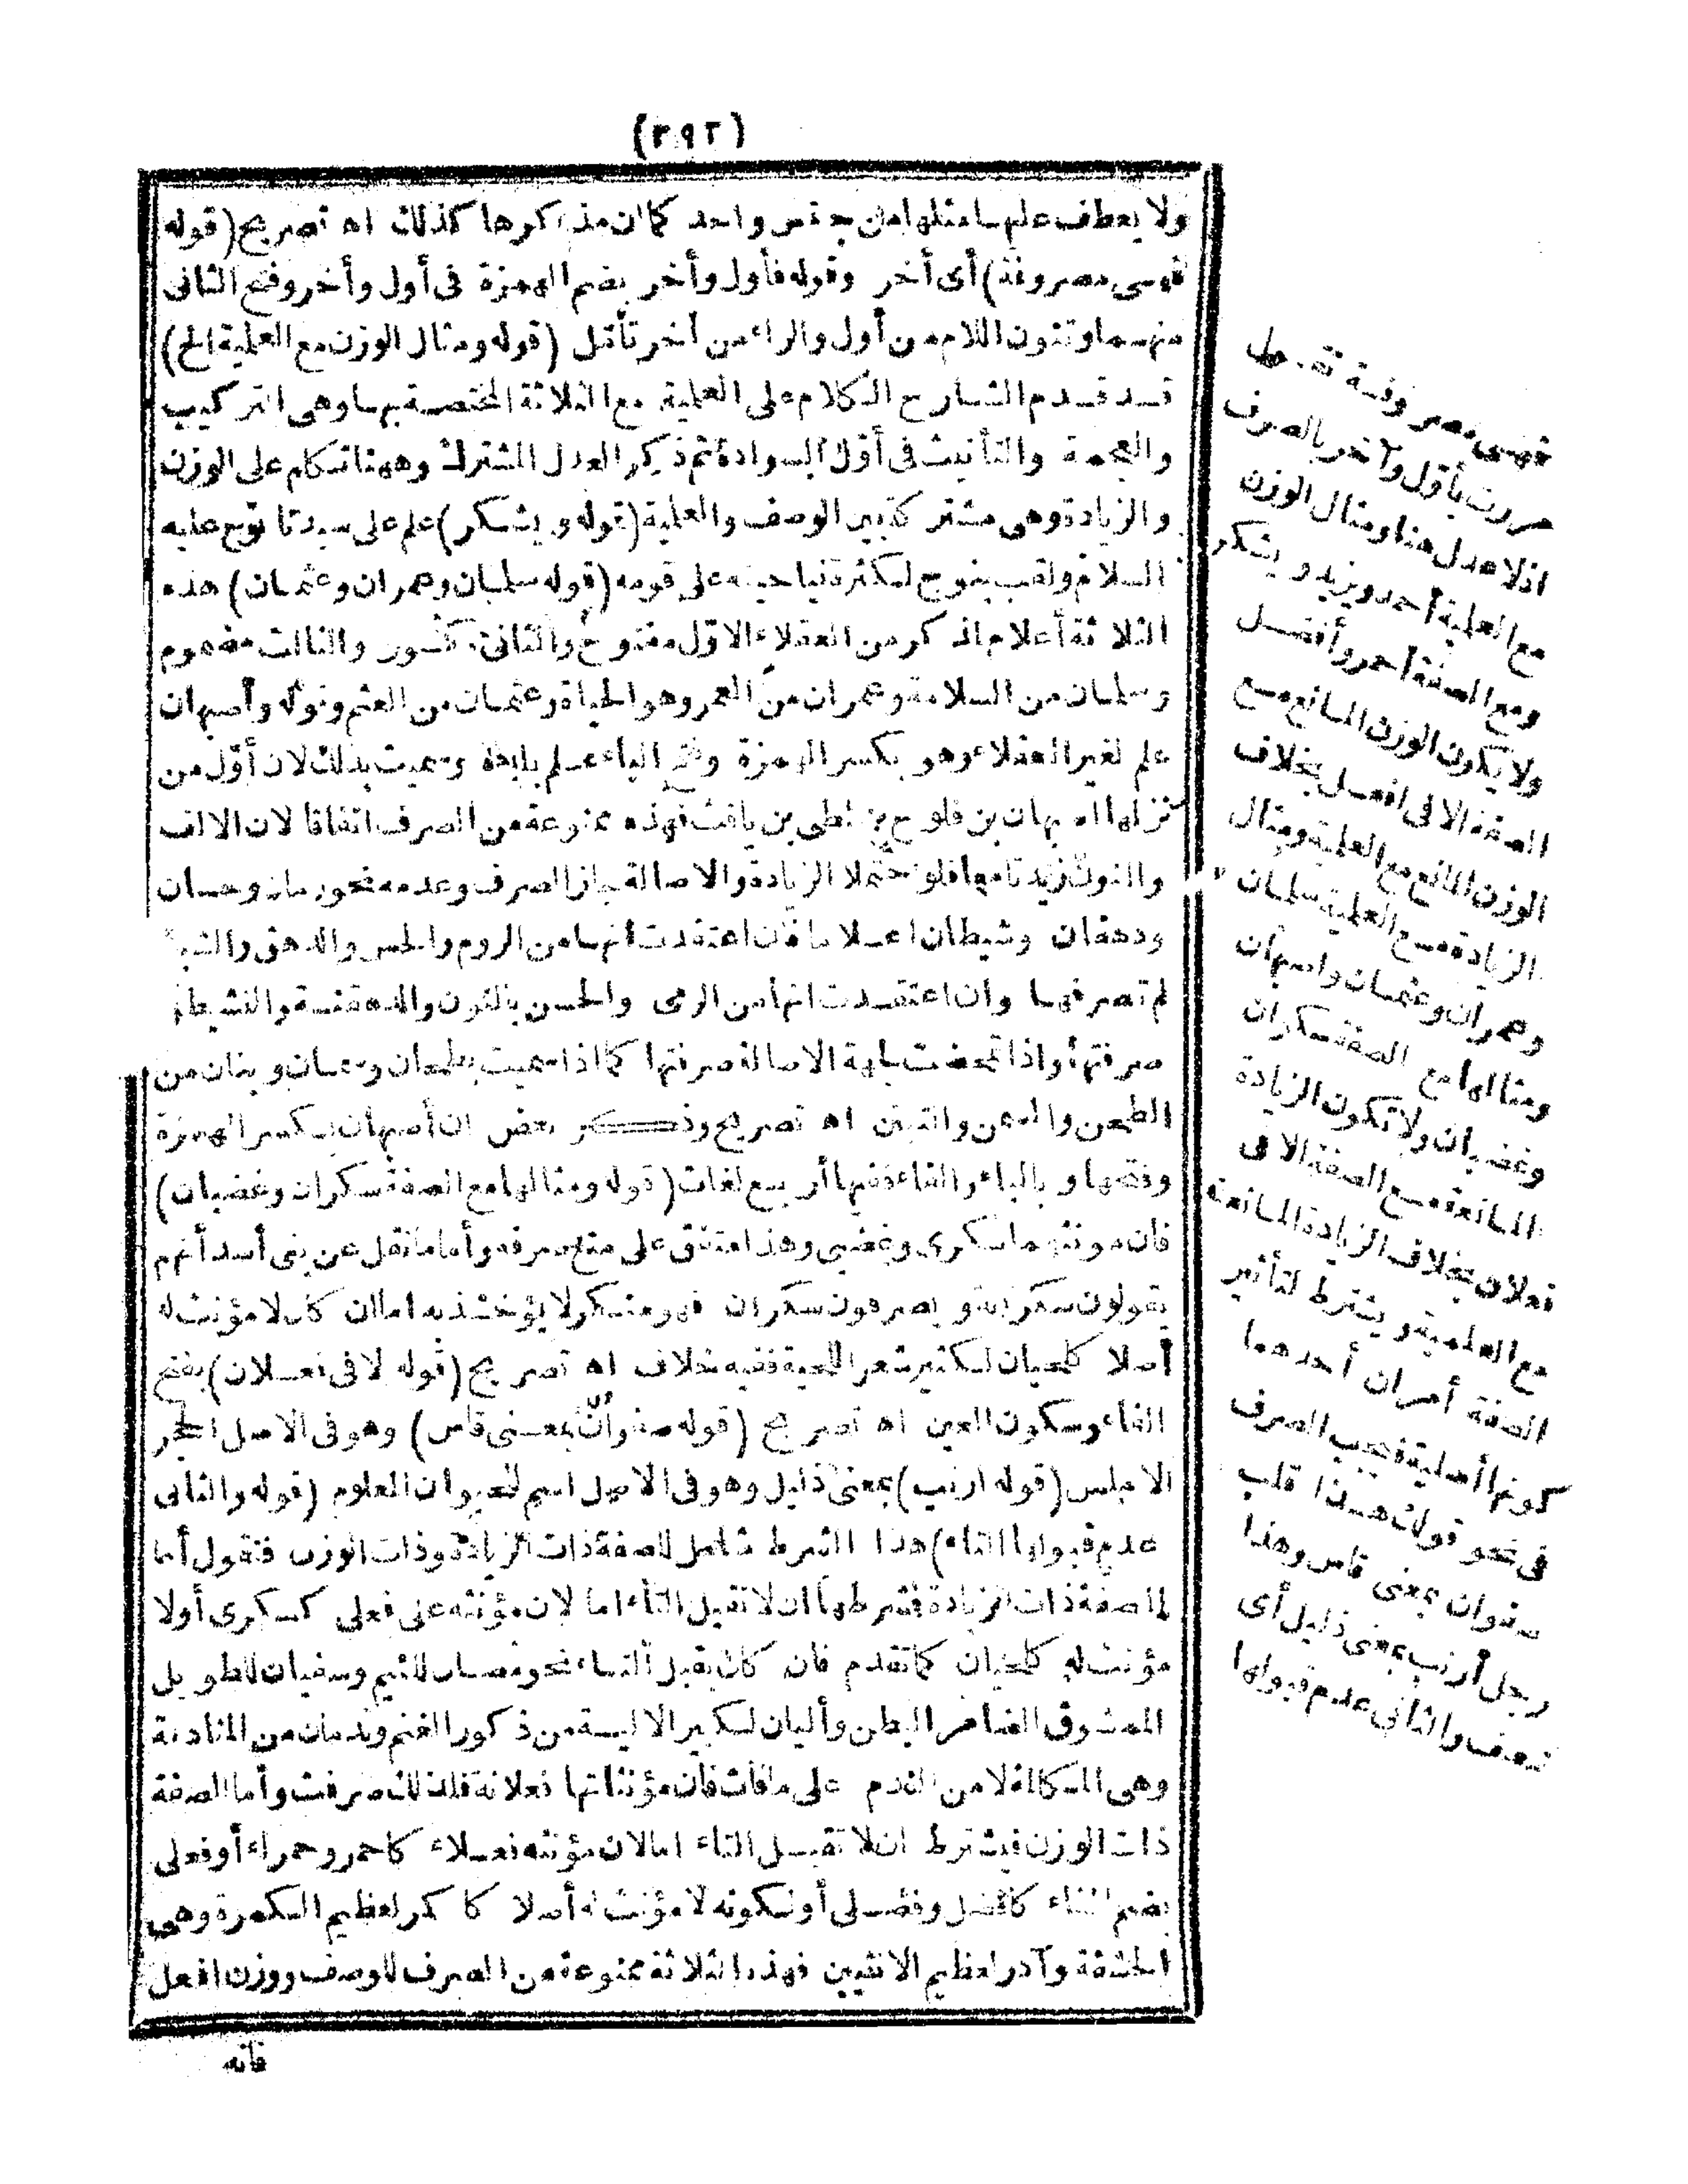 (٣٩٢)
ولا يعطف عليها مثلها من جنس واحد كما ان مذكرها كذلك اه تصريح (قوله
فهى مصروفة) أى أخر وقوله فأول وأخر بضم الهمزة فى أول وأخر وفتح الثانى
منهما وتنون اللام من أول والراء من أخر تأمل (قوله ومثال الوزن مع العلمية الخ)
قد قدم الشارح الكلام على العلمية مع الثلاثة المختصة بها وهى التركيب
والعجمة والتأنيث فى أول السوادة ثم ذكر العدل المشترك وههنا تكلم على الوزن
والزيادة وهى مشتركة بين الوصف والعلمية (قوله ويشكر) علم على سيدنا نوح عليه
السلام ولقب بنوح لكثرة نياحته على قومه (قوله سلمان وعمران وعثمان) هذه
الثلاثة أعلام لذكر من العقلاء الاول مفتوح والثانى مكسور والثالث مضموم
وسلمان من السلامة وعمران من العمر وهو الحياة وعثمان من العثم وقوله وأصبهان
علم لغير العقلاء وهو بكسر الهمزة وفتح الباء علم بلدة وسميت بذلك لان أول من
نزلها اصبهان بن فلوح بن لطى بن يافث فهذه ممنوعة من الصرف اتفاقا لان الالف
والنون زيدتا معا فلو احتملا الزيادة والاصالة جاز الصرف وعدمه نحو رمان وحسان
ودهقان وشيطان اعلاما فان اعتقدت انها من الروم والحس والدهق والشيط
لم تصرفها وان اعتقدت انها من الرمى والحسن بالنون والدهقنة والتشيطن
صرفتها واذا تمحضت لجهة الاصالة صرفتها كما اذا سميت بطحان وسمان وبتان من
الطحن والسمن والتبن اه تصريح وذكر بعض ان أصبهان بكسر الهمزة
وفتحها وبالباء والفاء ففيها أربع لغات (قوله ومثالها مع الصفة سكران وغضبان)
فان مؤنثهما سكرى وغضبى وهذا متفق على منع صرفه وأما ما نقل عن بنى أسد أنهم
يقولون سكرانة ويصرفون سكران فهو منكر لا يؤخذ به اما ان كان لا مؤنث له
أصلا كلحيان لكثير شعر اللحية ففيه خلاف اه تصريح (قوله لا فى فعلان) بفتح
الفاء وسكون العين اه تصريح (قوله صفوان بمعنى قاس) وهو فى الاصل الحجر
الاملس (قوله ارنب) بمعنى ذليل وهو فى الاصل اسم للحيوان المعلوم (قوله والثانى
عدم قبولها التاء) هذا الشرط شامل للصفة ذات الزيادة وذات الوزن فتقول أما
الصفة ذات الزيادة فشرطها ان لا تقبل التاء اما لان مؤنثه على فعلى كسكرى أو لا
مؤنث له كلحيان كما تقدم فان كان يقبل التاء نحو مصان للئيم وسفيان للطويل
الممشوق الضامر البطن وأليان لكبير الالية من ذكور الغنم وندمان من المنادمة
وهى المكالمة لا من الندم على ما فات فان مؤنثاتها فعلانة فلذلك صرفت وأما الصفة
ذات الوزن فيشترط ان لا تقبل التاء اما لان مؤنثه فعلاء كاحمر وحمراء أو فعلى
بضم الفاء كافضل وفضلى أو لكونه لا مؤنث له أصلا كاكمر لعظيم الكمرة وهى
الحشفة وآدر لعظيم الانثيين فهذه الثلاثة ممنوعة من الصرف للوصف ووزن افعل
فانه
فهى مصروفة تقول
مررت بأول وآخر بالصرف
اذ لا عدل هنا ومثال الوزن
مع العلمية أحمد ويزيد ويشكر
ومع الصفة أحمر وأفضل
ولا يكون الوزن المانع مع
الصفة الا فى افعل بخلاف
الوزن المانع مع العلمية ومثال
الزيادة مع العلمية سلمان
وعمران وعثمان واصبهان
ومثالها مع الصفة سكران
وغضبان ولا تكون الزيادة
المانعة مع الصفة الا فى
فعلان بخلاف الزيادة المانعة
مع العلمية ويشترط لتأثير
الصفة أمران أحدهما
كونها أصلية فيجب الصرف
فى نحو قولك هذا قلب
صفوان بمعنى قاس وهذا
رجل أرنب بمعنى ذليل أى
ضعيف والثانى عدم قبولها